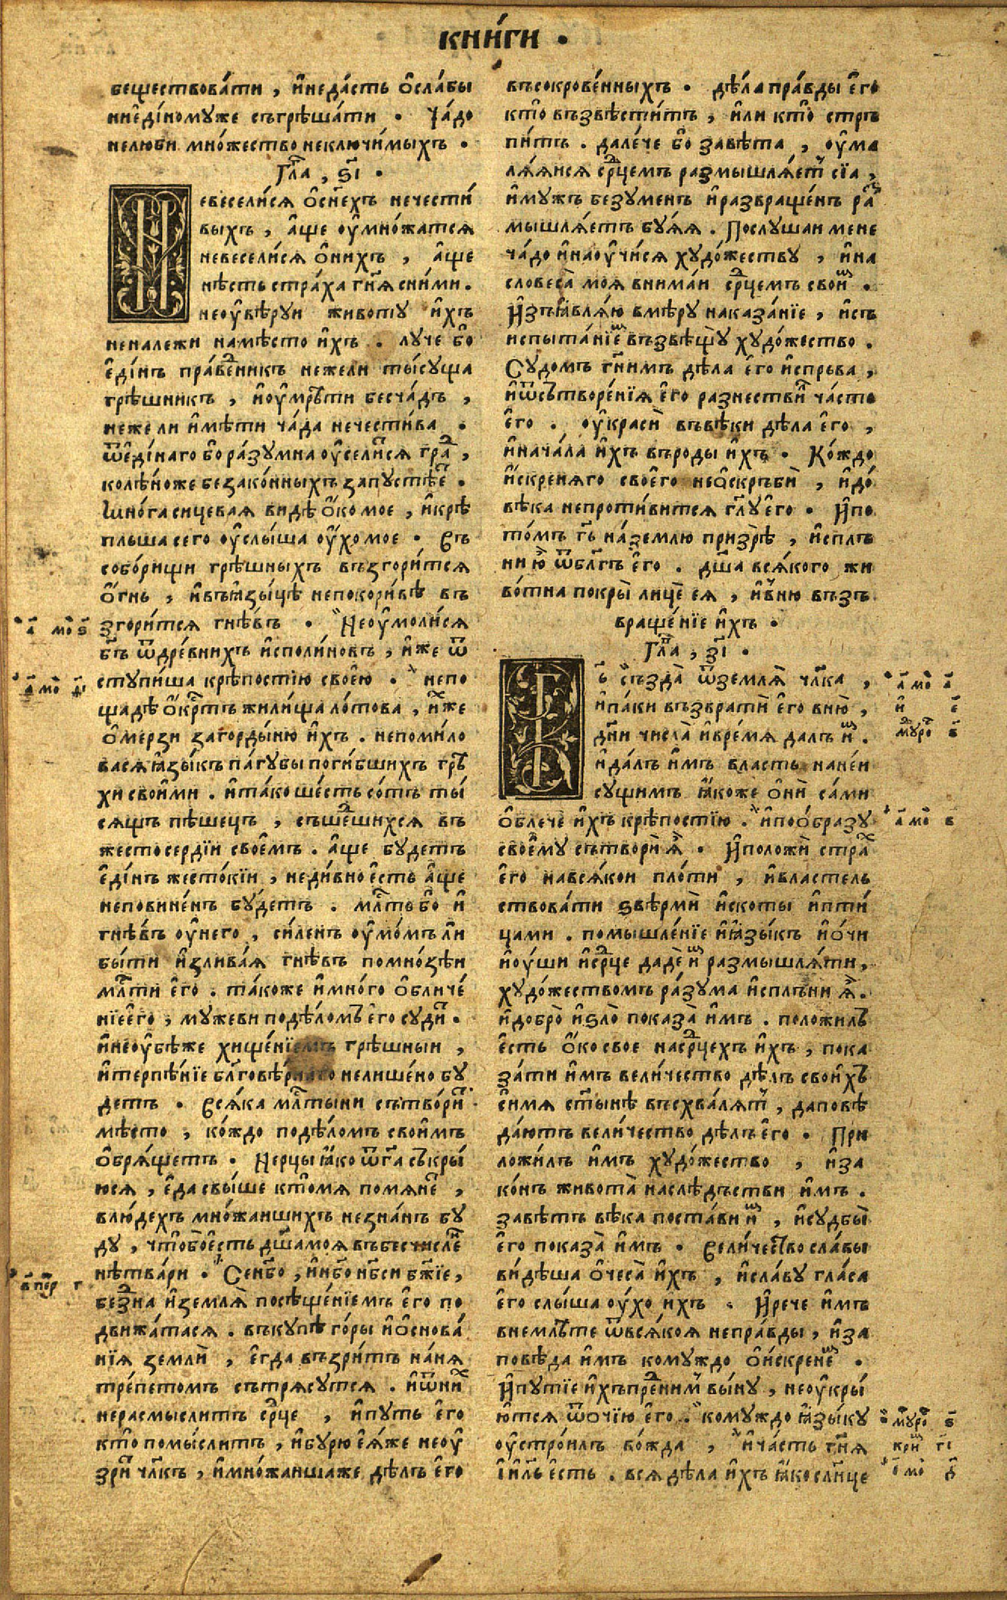 кни́ги .
беществова́ти , и҆неда́сть ѻ҆сла́бы
ниѐди́номуже съгрѣша́ти . Ча́до
нелюби мно́жество неключи́мыхъ .
Гла҃ , ѕ҃і .
Невесели́ся ѻ҆сн҃ехъ нечести́
выхъ , а҆ще оу҆мно́жатся
невесели́ся ѻ҆ни́хъ , а҆ще
нѣсть стра́ха гн҃я сни́ми .
неоу҆вѣруи животу̀ и҆́хъ
ненале́жи намѣ́сто и҆́хъ . лу́че бо
ѐди́нъ пра́вєⷣникъ нежели ты́суща
грѣ́шникъ , и҆оу҆мрѣ́ти бесча́дъ ,
неже ли и҆мѣ́ти ча́да нечести́ва .
ѿѐди́наго бо ра́зумна оу҆сели́тся гра́ⷣ ,
колѣ́ноже безако́нныхъ запустѣ́еⷮ .
Мно́га сицевая видѣ ѻ҆́ко мое , и҆крѣ
пльша сего оу҆слы́ша оу҆́хо мое . Въ
собо́рищи грѣ́шныхъ възгори́тся
ѻ҆́гнь , и҆въꙗ҆зы́цѣ непокори́вѣ въ
згори́тся гнѣ́въ . Неоу҆моли́ся
бг҃ъ ѿдре́внихъ и҆сполиновъ , и҆́же ѿ
ступи́ша крѣ́постїю своѐю . непо
щадѣ̀ ѻ҆́крⷭтъ жили́ща ло́това , и҆́хже
ѻ҆́мерзи заго́рды́ню и҆́хъ . непоми́ло
вася ꙗ҆зы́къ па́губы поги́бшихъ грѣ
хи свои́ми . и҆та́ко ше́сть со́тъ ты́
сящъ пѣ́шецъ , съше́дшихся въ
жестосе́рдїи своѐмъ . а҆ще бу́детъ
ѐди́нъ жесто́кїи , неди́вно ѐсть а҆ще
непови́ненъ бу́детъ . млⷭть бо и҆
гнѣ́въ оу҆него , си́ленъ оу҆мо́мъ ли
бы́ти и҆злива́я гнѣ́въ помно́зѣи
млⷭти ѐго . та́коже и҆мно́го ѻ҆бличе́
нїе ѐго , му́жеви подѣло́мъ ѐго су́дит .
и҆неоу҆бѣ́же хище́нїемъ грѣ́шныи ,
и҆терпѣ́нїе бл҃говѣ́рнаго нелише́но бу́
детъ . Вся́ка млⷭтыни сътвори́т
мѣ́сто , ко́ждо подѣло́мъ свои́мъ
ѻ҆бря́щетъ . Нерцы̀ ꙗ҆́ко ѿг҃а съкры́
юся , ѐда свы́ше ктомя помяне́тъ ,
влю́дехъ мно́жаишихъ незна́нъ бу́
ду , что́боѐсть дш҃а моя въбесчисле́н
нѣтва́ри . Сенбо , и҆нбо нбси бж҃їе ,
бе́здна и҆земля̀ посѣще́нїемъ ѐго по
движа́тася . въку́пѣ го́ры и҆ѻ҆снова́
нїя землѝ , ѐгда възри́тъ наня̀
тре́петомъ сътрясу́тся . и҆ѡ҆ни́хъ
нерасмы́слитъ срⷣце , и҆пу́ть ѐго
кто̀ помы́слитъ , и҆бу́рю ѐя́же неоу҆́
зри́т чл҃къ , и҆мно́жаишаже дѣ́лъ ѐго
въсокрове́нныхъ . дѣ́ла пра́вды ѐго
кто̀ възвѣсти́тъ , и҆ли кто̀ стръ
пи́тъ . дале́че бо завѣ́та , оу҆ма
ля́яися срⷣцемъ размышля́етъ сїа ,
и҆мужъ безу́менъ и҆развраще́нъ раз
мышля́етъ бу́яя . Послу́шаи мене
ча́до и҆наоу҆чи́ся худо́жеству , и҆на
словеса̀ моя̀ внима́и срⷣцемъ свои́мъ .
И҆зъꙗвля́ю вмѣ́ру наказа́нїе , и҆съ
испыта́нїем възвѣщу̀ худо́жество .
Судо́мъ гн҃имъ дѣ́ла ѐго и҆спрьва ,
и҆ѿсътворе́нїя ѐго разнестви́ ча́сти
ѐго . оу҆красѝ въвѣ́ки дѣ́ла ѐго ,
и҆нача́ла и҆́хъ въро́ды и҆́хъ . Ко́ждо
и҆́скреняго своѐго неѻ҆скръбѝ , и҆до́
вѣ́ка непроти́вится гл҃у ѐго . И҆по
то́мъ гь҃ на́землю призрѣ̀ , и҆сплъ
ни ю̀ ѿблг҃ъ ѐго . дш҃а вся́кого жи
во́тна покры̀ лицѐ ея̀ , и҆в̾ню̀ възъ
враще́нїе и҆́хъ .
Гла҃ , з҃і .
Бг҃ъ създа̀ ѿземля̀ чл҃ка ,
и҆па́ки възвратѝ ѐго вню̀ ,
дн҃и числа̀ и҆вре́мя да́лъ и҆́мъ .
и҆да́лъ и҆́мъ вла́сть нане́и
су́щимъ ꙗ҆́коже ѻ҆нѝ са́ми
ѻ҆блечѐ и҆́хъ крѣ́постїю . и҆поѻ҆́бразу
своѐму сътворѝ я҆̀ . И҆положѝ стра́хъ
ѐго нався́кои пло́ти , и҆вла́стель
ствова́ти ѕвѣрмѝ и҆скоты и҆пти́
цами . помышле́нїе и҆ꙗ҆зы́къ и҆ѻ҆́чи
и҆оу҆́ши и҆срⷣце дадѐ и҆́мъ размышля́ти ,
худо́жествомъ ра́зума и҆спльни я҆̀ .
и҆добро̀ и҆ѕло̀ показа̀ и҆́мъ . положи́лъ
ѐсть ѻ҆́ко свое насрⷣцехъ и҆́хъ , пока
за́ти и҆́мъ вели́чество дѣ́лъ свои́хъ
и҆́имя ст҃ынѣ въсхваля́тъ , даповѣ́
даютъ вели́чество дѣ́лъ ѐго . При
ложи́лъ и҆́мъ худо́жество , и҆за
ко́нъ живота̀ наслѣ́дъстви и҆́мъ .
завѣ́тъ вѣ́ка поста́ви и҆́мъ , и҆судбы̀
ѐго показа̀ и҆́мъ . Вели́чество сла́вы
ви́дѣша ѻ҆чеса̀ и҆́хъ , и҆сла́ву гла́са
ѐго слы́ша оу҆́хо ихъ . И҆рече и҆́мъ
внемлѣ́те ѿвся́коя непра́вды , и҆за
повѣ́да и҆́мъ кому́ждо ѻ҆и҆́скренемъ .
И҆путїе и҆́хъпрⷣеним̾ вы́ну , неоу҆кры́
ются ѿѻ҆чїю ѐго . кому́ждо ꙗ҆зы́ку
оу҆стро́илъ во́жда , и҆ча́сть гн҃я
і҆и҃ль ѐсть . вся дѣ́ла и҆́хъ ꙗ҆́ко сл҃нце
а҃ мо́ ѕ҃
а҃ мо́
в҃ пер г҃
а҃ мо́ а҃
и҆ є҃
мѹро в҃
а҃ мо́ в҃
мѹро ѕ҃
кри г҃і
і҃ мо́ д҃